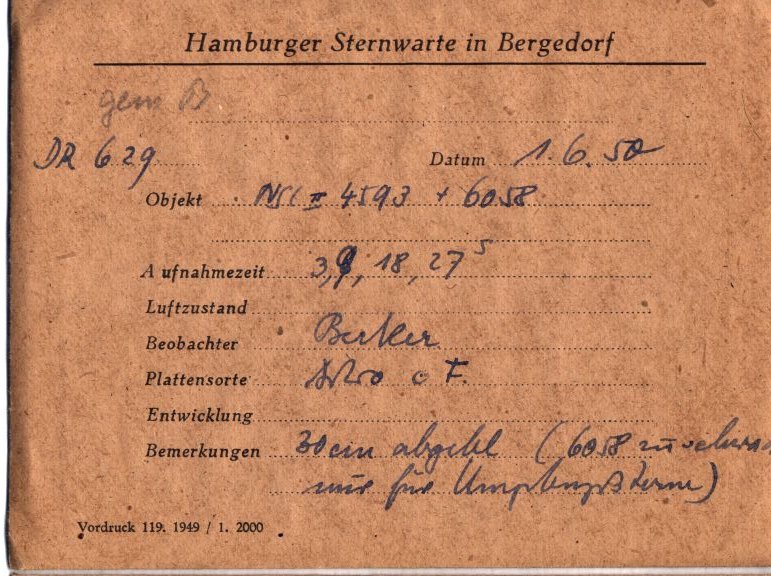 Hamburger Sternwarte in Bergedorf
gem B
DR 629 Datum 1.6.50
Objekt 4593 + 6058
Aufnahmezeit 3, 9, 18, 27 s
Luftzustand
Beobachter
Plattensorte Astro o F.
Entwicklung
Bemerkungen 30cm abgebl (6058 zu schwach
nur für
Vordruck 119. 1949 / 1. 2000